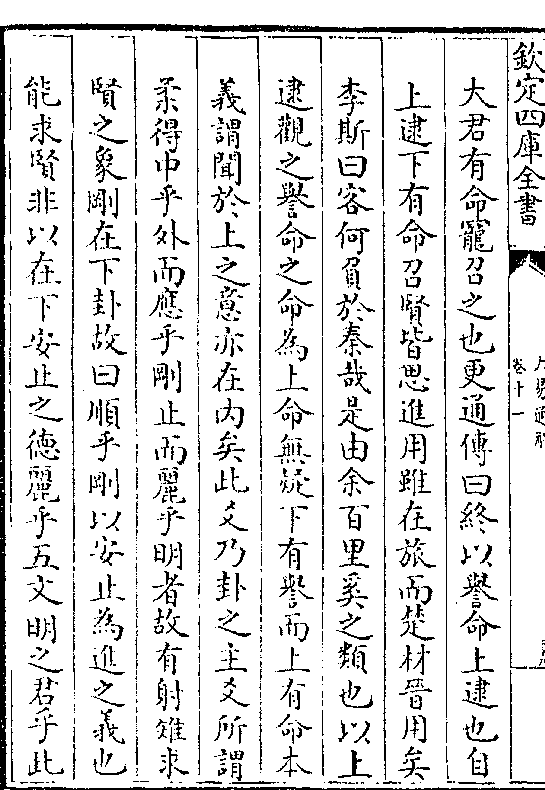 欽定四庫全書
卷十一
大君有命寵召之也更通傳曰終以譽命上逮也自
上逮下有命召賢皆思進用雖在旅而楚材晉用矣
李斯曰客何負於秦哉是由余百里奚之類也以上
逮觀之譽命之命為上命無疑下有譽而上有命本
義謂聞於上之意亦在内矣此爻乃卦之主爻所謂
柔得中乎外而應乎剛止而麗乎明者故有射雉求
賢之象剛在下卦故曰順乎剛以安止為進之義也
能求賢非以在下安止之德麗乎五文明之君乎此